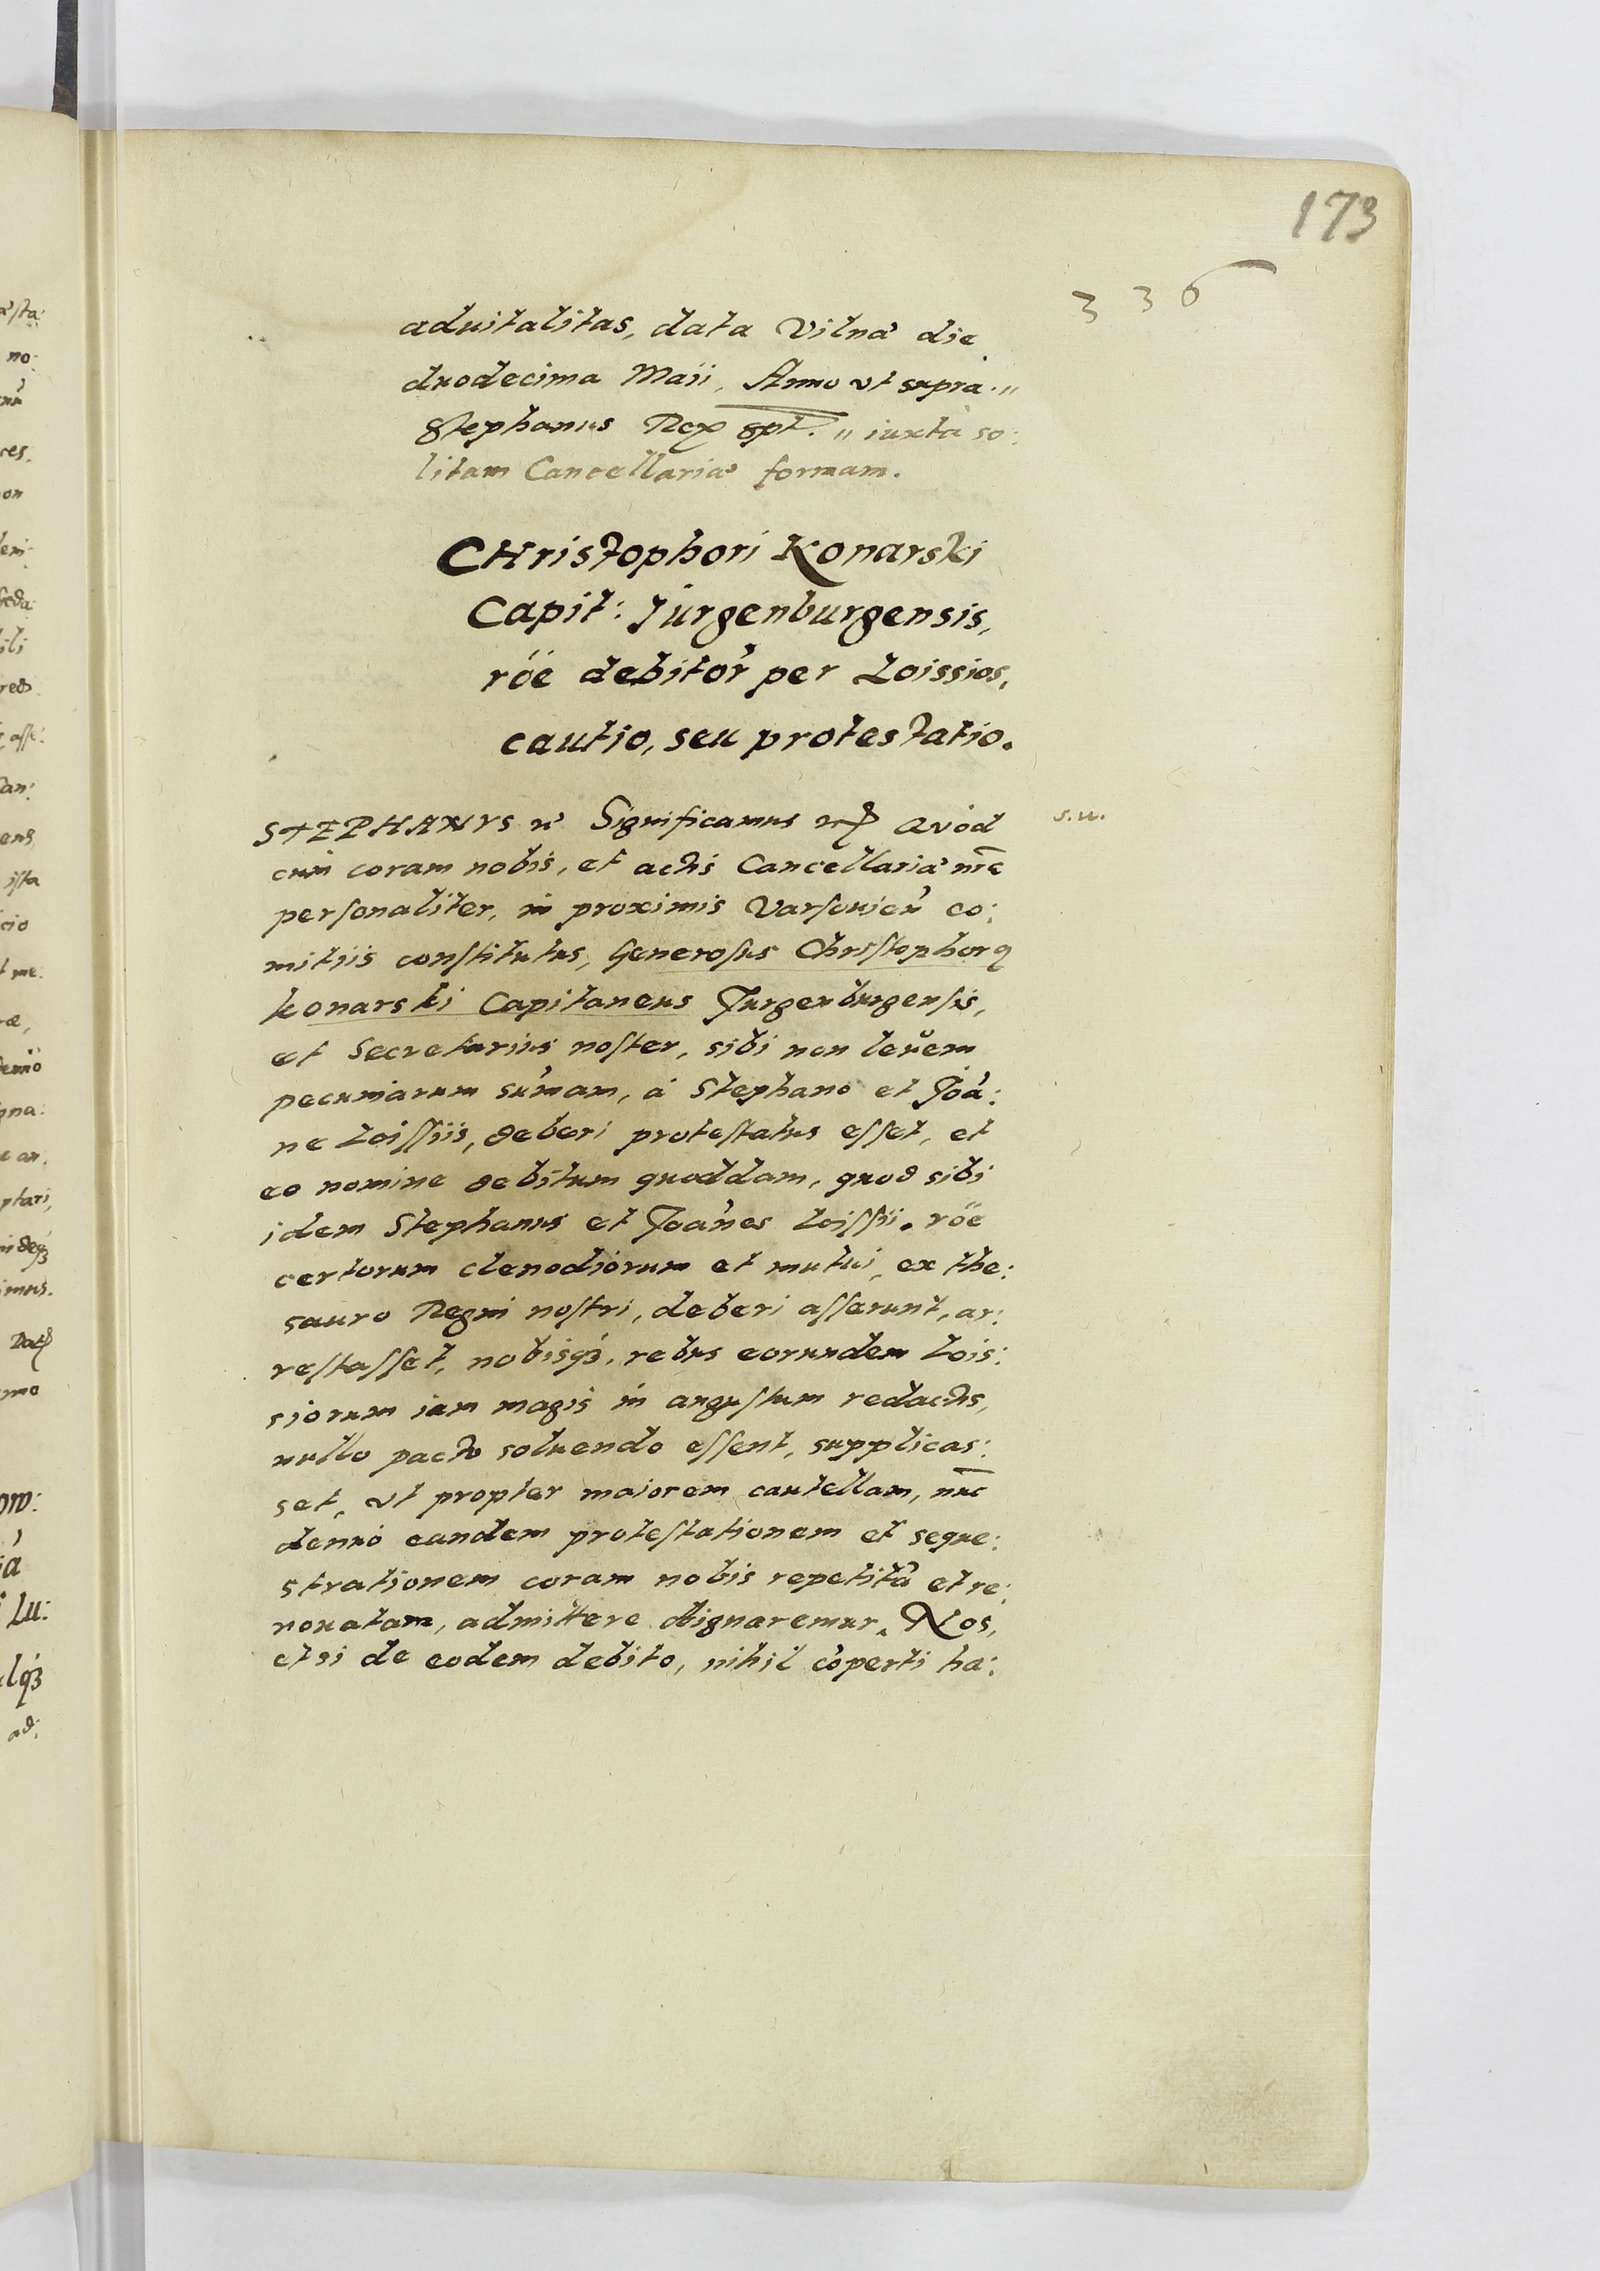 173
336
aduitalitas, data Vilnæ die
duodecima Maii, Anno vt supra.,,
Stephanus Rex spt. ,, iuxta so:
litam Cancellariæ formam.
CHristophori Konarski
Capit: Jurgenburgensis,
röe debitor̃ per Loissios,
cautio, seu protestatio.
STEPHANVS Significamus Qvód
s.w.
cum coram nobis, et actis Cancellariæ nr̄e
personaliter, in proximis Varsouień co:
mitiis constitutus, Generosus Christophorꝯ
Konarski Capitaneus Jurgenburgensis,
et Secretarius noster, sibi non leuem
pecuniarum sum̃am, á Stephano et Joã:
ne Loissiis, deberi protestatus esset, et
eo nomine debitum quoddam, quod sibi
idem Stephanus et Joañes Loissii. röe
certorum clenodiorum et mutui, ex the:
sauro Regni nostri, deberi asserunt, ar:
restasset, nobisqꝫ, rebus eorundem Lois:
siorum iam magis in angustum redactis,
nullo pacto soluendo essent, supplicas:
set, vt propter maiorem cautellam, nūc
denuó eandem protestationem et seque:
strationem coram nobis repetitã et re:
nouatam, admittere dignaremur. Nos,
etsi de eodem debito, nihil cõperti ha: